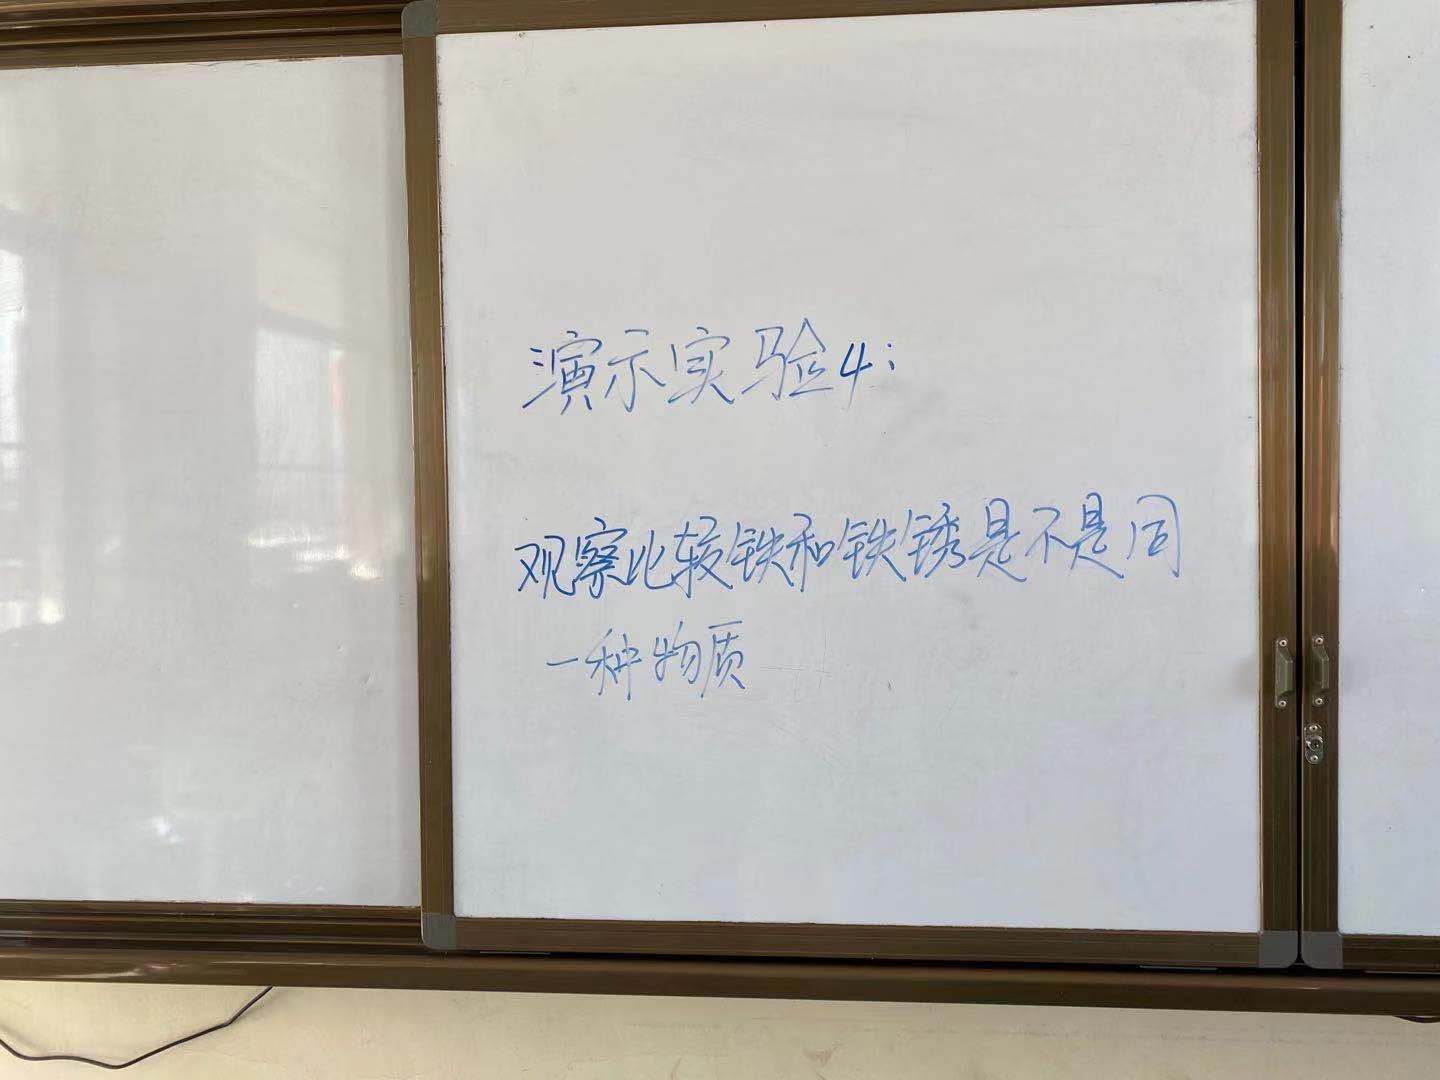 演示实验4:
观察比较铁和铁锈是不是同
一种物质